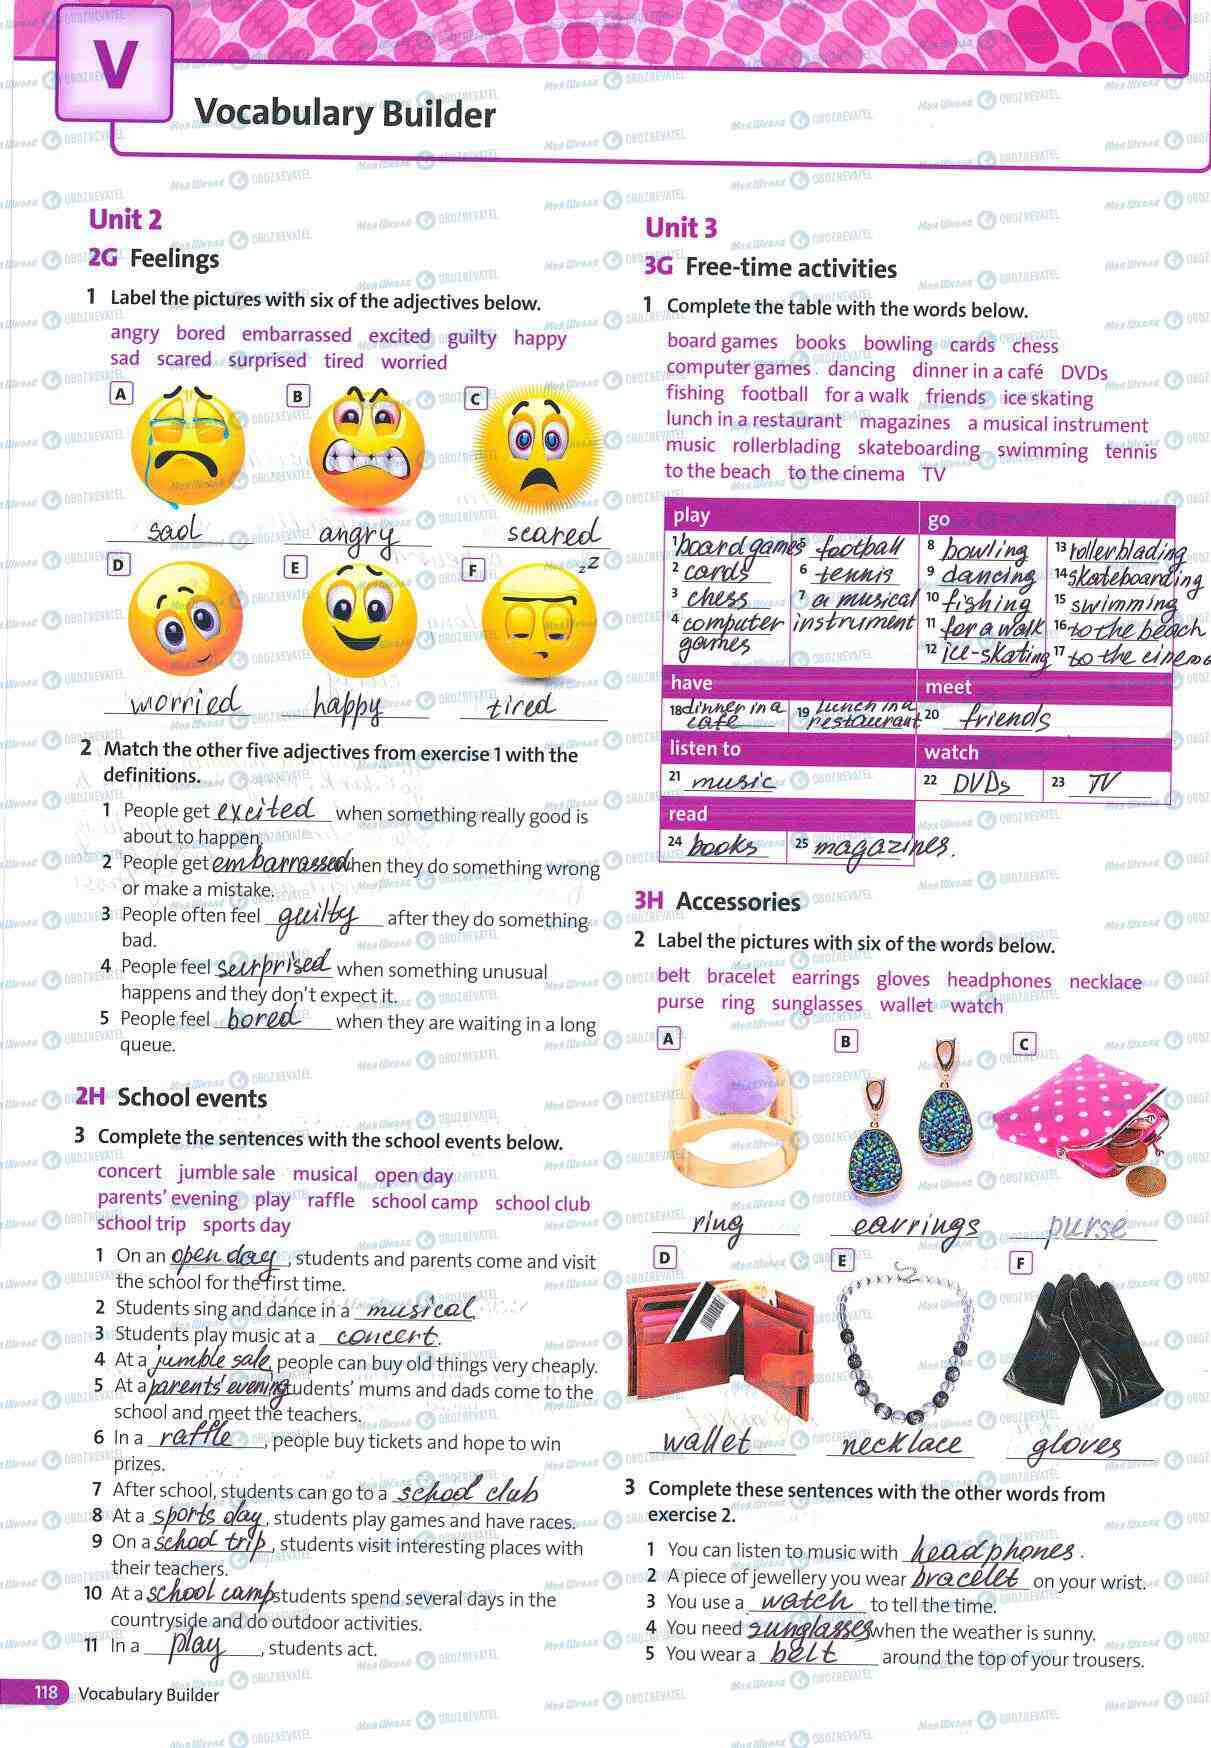 V
Vocabulary Builder
Unit 2
2G Feelings
1 Label the pictures with six of the adjectives below.
angry bored embarrassed excited guilty happy
sad scared surprised tired worried
A B C
sad angry scared
D E F
z Z
worried happy tired
2 Match the other five adjectives from exercise 1 with the
definitions.
1 People get excited when something really good is
about to happen.
2 People get embarrassed when they do something wrong
or make a mistake.
3 People often feel guilty after they do something
bad.
4 People feel surprised when something unusual
happens and they don't expect it.
5 People feel bored when they are waiting in a long
queue.
2H School events
3 Complete the sentences with the school events below.
concert jumble sale musical open day
parents' evening play raffle school camp school club
school trip sports day
1 On an open day, students and parents come and visit
the school for the first time.
2 Students sing and dance in a musical.
3 Students play music at a concert.
4 At a jumble sale, people can buy old things very cheaply.
5 At a parents' evening students' mums and dads come to the
school and meet the teachers.
6 In a raffle, people buy tickets and hope to win
prizes.
7 After school, students can go to a school club
8 At a sports day, students play games and have races.
9 On a school trip, students visit interesting places with
their teachers.
10 At a school camp students spend several days in the
countryside and do outdoor activities.
11 In a play, students act.
118 Vocabulary Builder
Unit 3
3G Free-time activities
1 Complete the table with the words below.
board games books bowling cards chess
computer games dancing dinner in a café DVDs
fishing football for a walk friends ice skating
lunch in a restaurant magazines a musical instrument
music rollerblading skateboarding swimming tennis
to the beach to the cinema TV
play go
1 board games 5 football 8 bowling 13 rollerblading
2 cards 6 tennis 9 dancing 14 skateboarding
3 chess 7 a musical 10 fishing 15 swimming
4 computer instrument 11 for a walk 16 to the beach
games 12 ice-skating 17 to the cinema
have meet
18 dinner in a 19 lunch in a 20 friends
cafe restaurant
listen to watch
21 music 22 DVDs 23 TV
read
24 books 25 magazines.
3H Accessories
2 Label the pictures with six of the words below.
belt bracelet earrings gloves headphones necklace
purse ring sunglasses wallet watch
A B C
ring earrings purse
D E F
wallet necklace gloves
3 Complete these sentences with the other words from
exercise 2.
1 You can listen to music with headphones.
2 A piece of jewellery you wear bracelet on your wrist.
3 You use a watch to tell the time.
4 You need sunglasses when the weather is sunny.
5 You wear a belt around the top of your trousers.